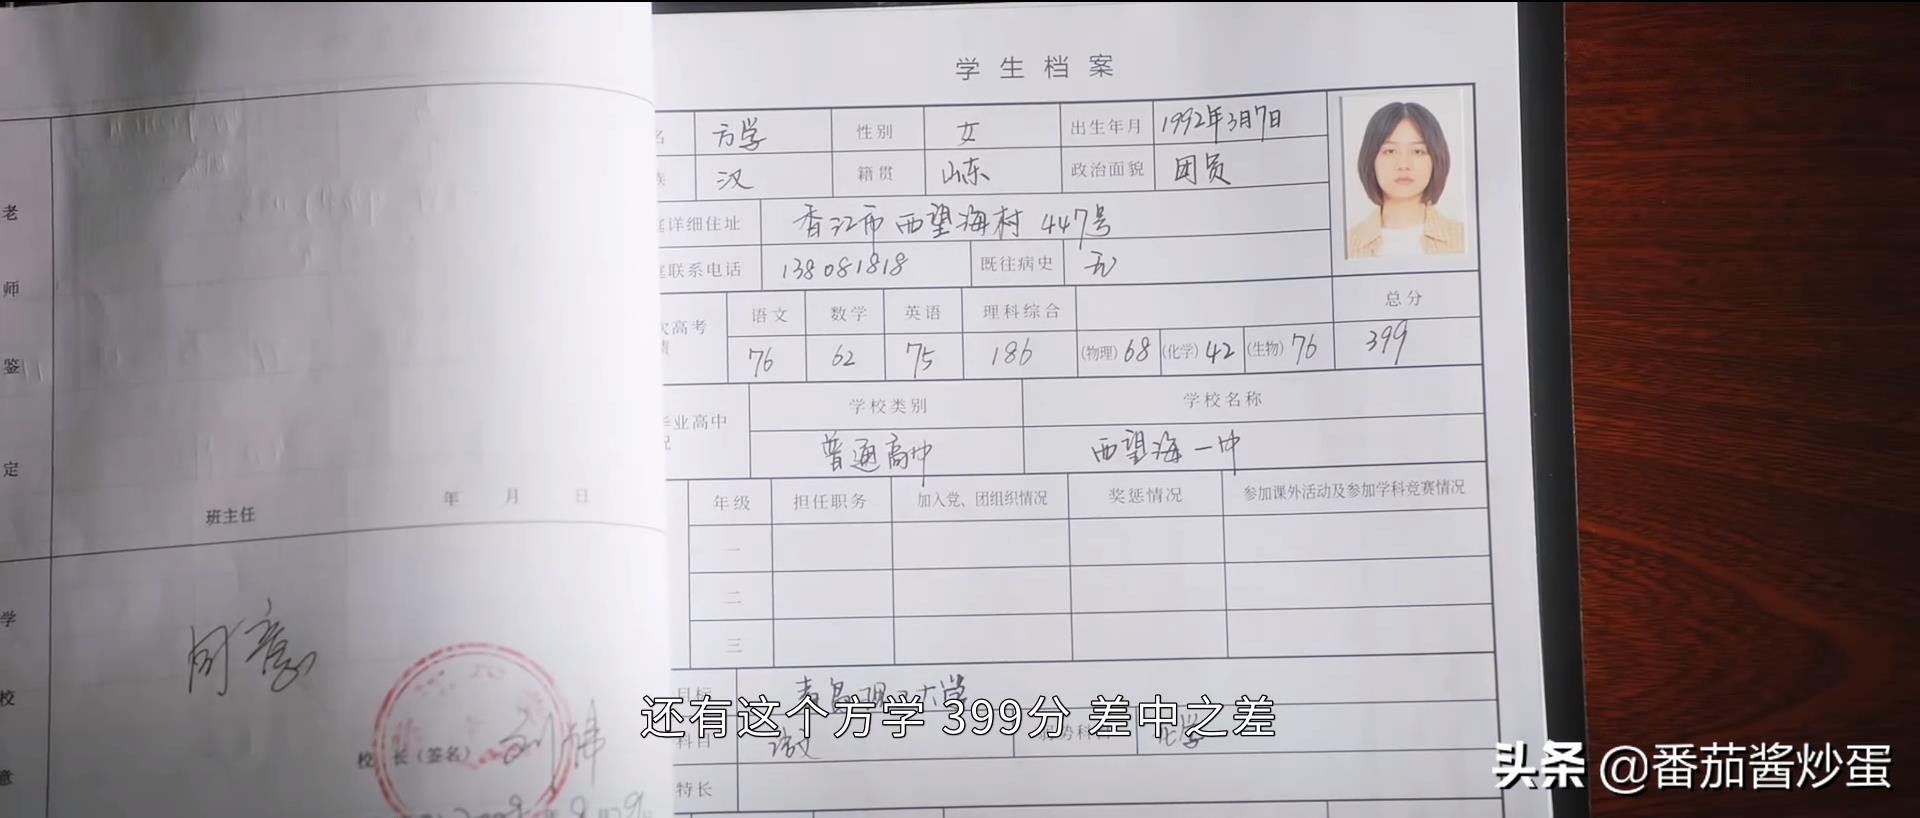 学生档案
名 方学 性别 女 出生年月 1992年3月7日
族 汉 籍贯 山东 政治面貌 团员
庭详细住址 香江市西望海村 447号
庭联系电话 138081818 既往病史 无
次高考
绩
语文 数学 英语 理科综合 总分
76 62 75 186 (物理) 68 (化学) 42 (生物) 76 399
毕业高中
况
学校类别 学校名称
普通高中 西望海一中
年级 担任职务 加入党、团组织情况 奖惩情况 参加课外活动及参加学科竞赛情况
一
二
三
目标 青岛理工大学
科目 语文 弱势科目 化学
特长
老师鉴定
班主任 年 月 日
学校意
同意
校长(签名) 刘伟
还有这个方学 399分 差中之差
头条 @番茄酱炒蛋